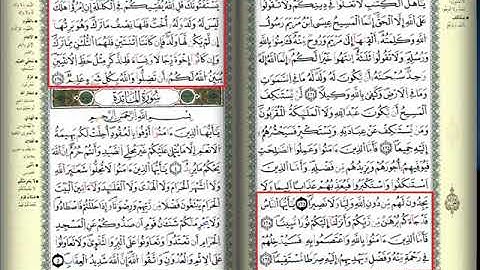 يَٰٓأَهْلَ ٱلْكِتَٰبِ لَا تَغْلُوا۟ فِى دِينِكُمْ وَلَا تَقُولُوا۟
عَلَى ٱللَّهِ إِلَّا ٱلْحَقَّ إِنَّمَا ٱلْمَسِيحُ عِيسَى ٱبْنُ مَرْيَمَ رَسُولُ
ٱللَّهِ وَكَلِمَتُهُۥٓ أَلْقَىٰهَآ إِلَىٰ مَرْيَمَ وَرُوحٌ مِّنْهُ فَـَٔامِنُوا۟ بِٱللَّهِ
وَرُسُلِهِۦ وَلَا تَقُولُوا۟ ثَلَٰثَةٌ ٱنتَهُوا۟ خَيْرًا لَّكُمْ إِنَّمَا ٱللَّهُ إِلَٰهٌ
وَٰحِدٌ سُبْحَٰنَهُۥٓ أَن يَكُونَ لَهُۥ وَلَدٌ لَّهُۥ مَا فِى ٱلسَّمَٰوَٰتِ
وَمَا فِى ٱلْأَرْضِ وَكَفَىٰ بِٱللَّهِ وَكِيلًا ١٧١ لَّن يَسْتَنكِفَ
ٱلْمَسِيحُ أَن يَكُونَ عَبْدًا لِّلَّهِ وَلَا ٱلْمَلَٰٓئِكَةُ
ٱلْمُقَرَّبُونَ وَمَن يَسْتَنكِفْ عَنْ عِبَادَتِهِۦ وَيَسْتَكْبِرْ فَسَيَحْشُرُهُمْ
إِلَيْهِ جَمِيعًا ١٧٢ فَأَمَّا ٱلَّذِينَ ءَامَنُوا۟ وَعَمِلُوا۟ ٱلصَّٰلِحَٰتِ
فَيُوَفِّيهِمْ أُجُورَهُمْ وَيَزِيدُهُم مِّن فَضْلِهِۦ وَأَمَّا ٱلَّذِينَ
ٱسْتَنكَفُوا۟ وَٱسْتَكْبَرُوا۟ فَيُعَذِّبُهُمْ عَذَابًا أَلِيمًا وَلَا
يَجِدُونَ لَهُم مِّن دُونِ ٱللَّهِ وَلِيًّا وَلَا نَصِيرًا ١٧٣ يَٰٓأَيُّهَا ٱلنَّاسُ
قَدْ جَآءَكُم بُرْهَٰنٌ مِّن رَّبِّكُمْ وَأَنزَلْنَآ إِلَيْكُمْ نُورًا مُّبِينًا ١٧٤
فَأَمَّا ٱلَّذِينَ ءَامَنُوا۟ بِٱللَّهِ وَٱعْتَصَمُوا۟ بِهِۦ فَسَيُدْخِلُهُمْ
فِى رَحْمَةٍ مِّنْهُ وَفَضْلٍ وَيَهْدِيهِمْ إِلَيْهِ صِرَٰطًا مُّسْتَقِيمًا ١٧٥
يَسْتَفْتُونَكَ قُلِ ٱللَّهُ يُفْتِيكُمْ فِى ٱلْكَلَٰلَةِ إِنِ ٱمْرُؤٌا۟ هَلَكَ
لَيْسَ لَهُۥ وَلَدٌ وَلَهُۥٓ أُخْتٌ فَلَهَا نِصْفُ مَا تَرَكَ وَهُوَ يَرِثُهَآ
إِن لَّمْ يَكُن لَّهَا وَلَدٌ فَإِن كَانَتَا ٱثْنَتَيْنِ فَلَهُمَا ٱلثُّلُثَانِ مِمَّا تَرَكَ
وَإِن كَانُوٓا۟ إِخْوَةً رِّجَالًا وَنِسَآءً فَلِلذَّكَرِ مِثْلُ حَظِّ ٱلْأُنثَيَيْنِ
يُبَيِّنُ ٱللَّهُ لَكُمْ أَن تَضِلُّوا۟ وَٱللَّهُ بِكُلِّ شَىْءٍ عَلِيمٌ ١٧٦
سُورَةُ المَائِدَةِ
بِسْمِ ٱللَّهِ ٱلرَّحْمَٰنِ ٱلرَّحِيمِ
يَٰٓأَيُّهَا ٱلَّذِينَ ءَامَنُوٓا۟ أَوْفُوا۟ بِٱلْعُقُودِ أُحِلَّتْ لَكُم بَهِيمَةُ
ٱلْأَنْعَٰمِ إِلَّا مَا يُتْلَىٰ عَلَيْكُمْ غَيْرَ مُحِلِّى ٱلصَّيْدِ وَأَنتُمْ حُرُمٌ إِنَّ ٱللَّهَ
يَحْكُمُ مَا يُرِيدُ ١ يَٰٓأَيُّهَا ٱلَّذِينَ ءَامَنُوا۟ لَا تُحِلُّوا۟ شَعَٰٓئِرَ ٱللَّهِ
وَلَا ٱلشَّهْرَ ٱلْحَرَامَ وَلَا ٱلْهَدْىَ وَلَا ٱلْقَلَٰٓئِدَ وَلَآ ءَآمِّينَ ٱلْبَيْتَ
ٱلْحَرَامَ يَبْتَغُونَ فَضْلًا مِّن رَّبِّهِمْ وَرِضْوَٰنًا وَإِذَا حَلَلْتُمْ فَٱصْطَادُوا۟
وَلَا يَجْرِمَنَّكُمْ شَنَـَٔانُ قَوْمٍ أَن صَدُّوكُمْ عَنِ ٱلْمَسْجِدِ
ٱلْحَرَامِ أَن تَعْتَدُوا۟ وَتَعَاوَنُوا۟ عَلَى ٱلْبِرِّ وَٱلتَّقْوَىٰ وَلَا تَعَاوَنُوا۟
عَلَى ٱلْإِثْمِ وَٱلْعُدْوَٰنِ وَٱتَّقُوا۟ ٱللَّهَ إِنَّ ٱللَّهَ شَدِيدُ ٱلْعِقَابِ ٢